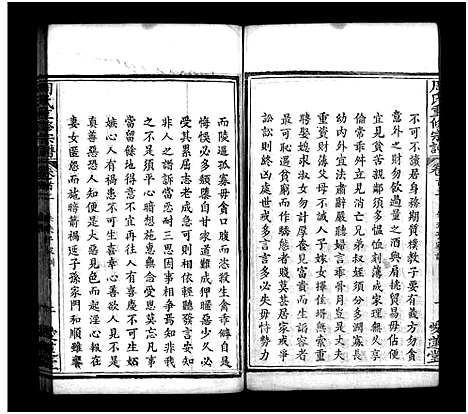 周氏重修宗譜
不可不讀居身務期質樸教子要有義方勿貪
意外之財勿飲過量之酒與肩挑貿易毋佔便
宜見貧苦親鄰須多溫恤刻薄成家理無久享
倫常乖舛立見消亡兄弟叔姪須分多潤寡長
幼內外宜法肅辭嚴聽婦言乖骨肉豈是丈夫
重資財薄父母不成人子嫁女擇佳壻無索重
聘娶媳求淑女毋計厚奩見富貴而生諂容者
最可恥遇貧窮而作驕態者賤莫甚居家戒爭
訟訟則終凶處世戒多言言多必失毋恃勢力
而凌逼孤寡毋貪口腹而恣殺生禽乖僻自是
悔誤必多頹隳自甘家道難成狎暱惡少久必
受其累屈志老成急則可相依輕聽發言安知
非人之譖訴當忍耐三思因事相爭焉知非我
之不是須平心暗想施惠無念受恩莫忘凡事
當留餘地得意不宜再往人有喜慶不可生妒
嫉心人有禍患不可生喜幸心善欲人見不是
真善惡恐人知便是大惡見色而起淫心報在
妻女匿怨而施暗箭禍延子孫家門和順雖饔